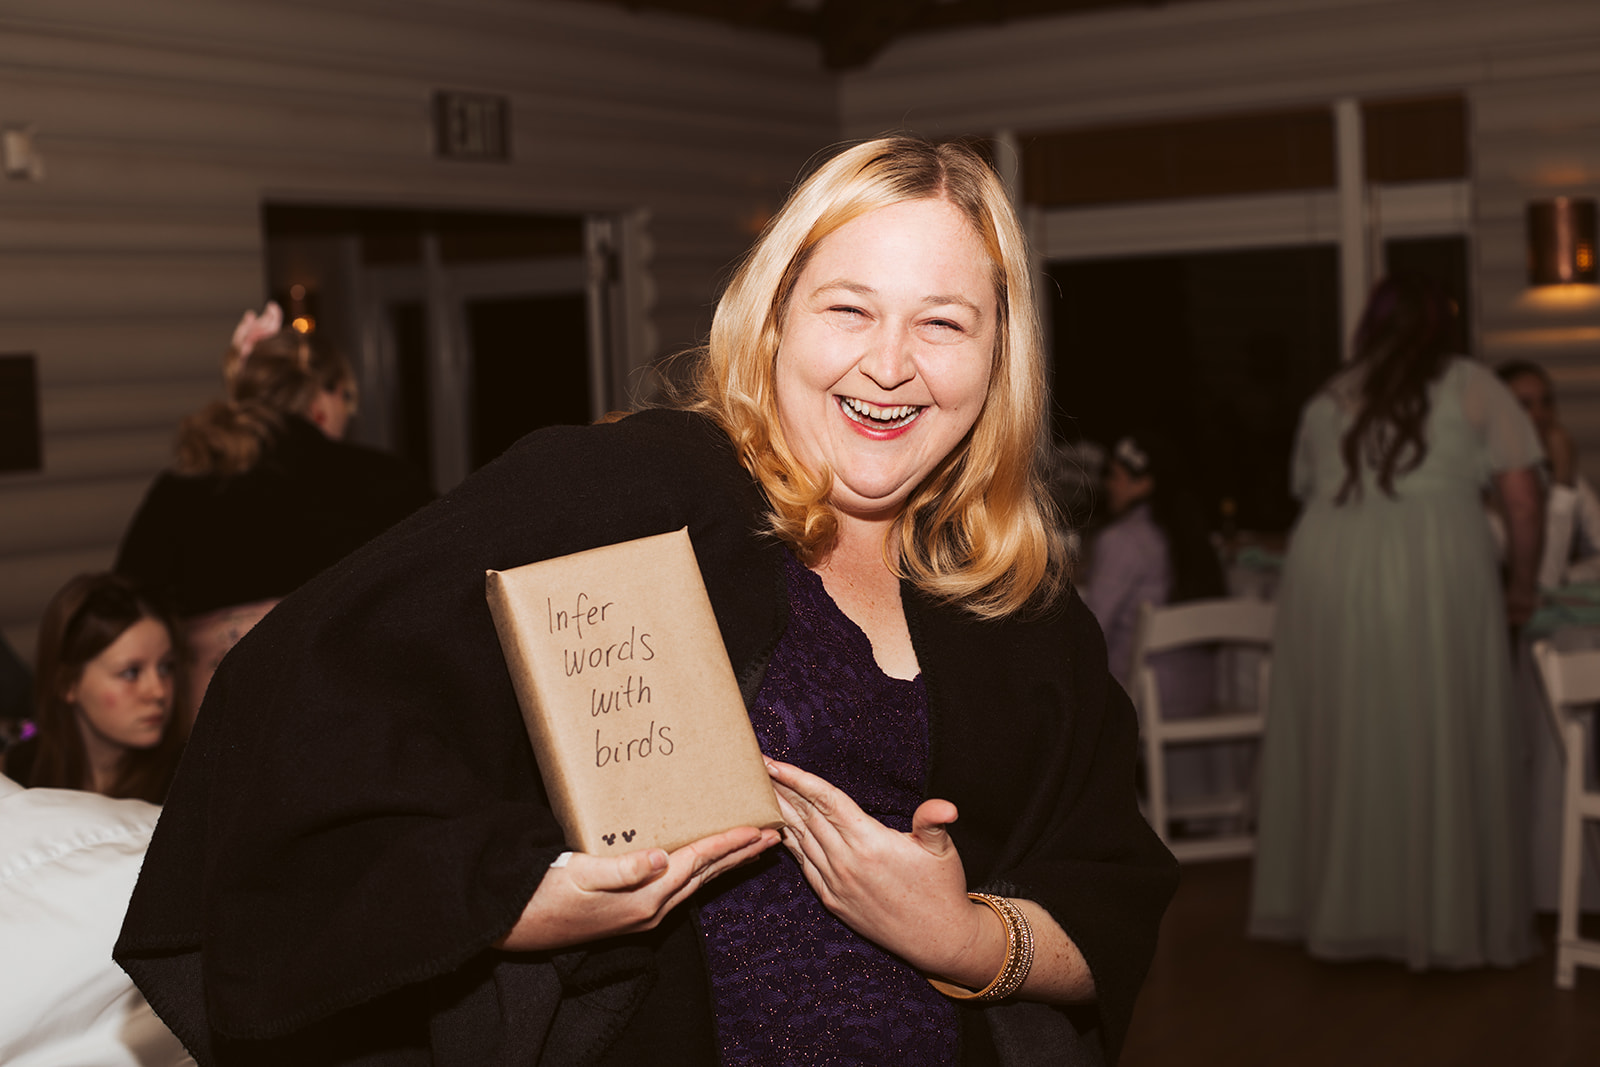 EXIT
Infer
words
with
birds